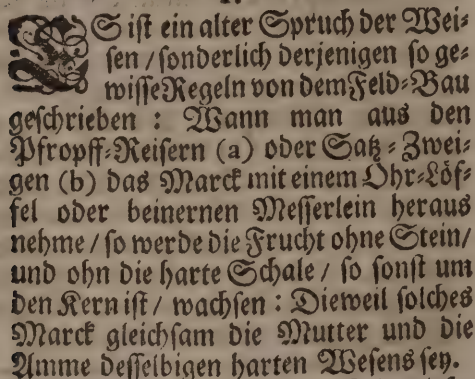 ES ist ein alter Spruch der Wei-
sen / sonderlich derjenigen so ge-
wisse Regeln von dem Feld-Bau
geschrieben : Wann man aus den
Pfropff-Reisern (a) oder Satz-Zwei-
gen (b) das Marck mit einem Ohr-Löf-
fel oder beinernen Messerlein heraus
nehme / so werde die Frucht ohne Stein /
und ohn die harte Schale / so sonst um
den Kern ist / wachsen : Dieweil solches
Marck gleichsam die Mutter und die
Amme desselbigen harten Wesens sey.